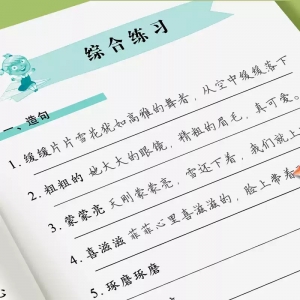 综合练习
一、造句
1. 缓缓 片片雪花犹如高雅的舞者，从空中缓缓落下
2. 粗粗的 她大大的眼镜，粗粗的眉毛，真可爱。
3. 蒙蒙亮 天刚蒙蒙亮，雪还下着，我们就上
4. 喜滋滋 菲菲心里喜滋滋的，脸上带着
5. 琢磨琢磨